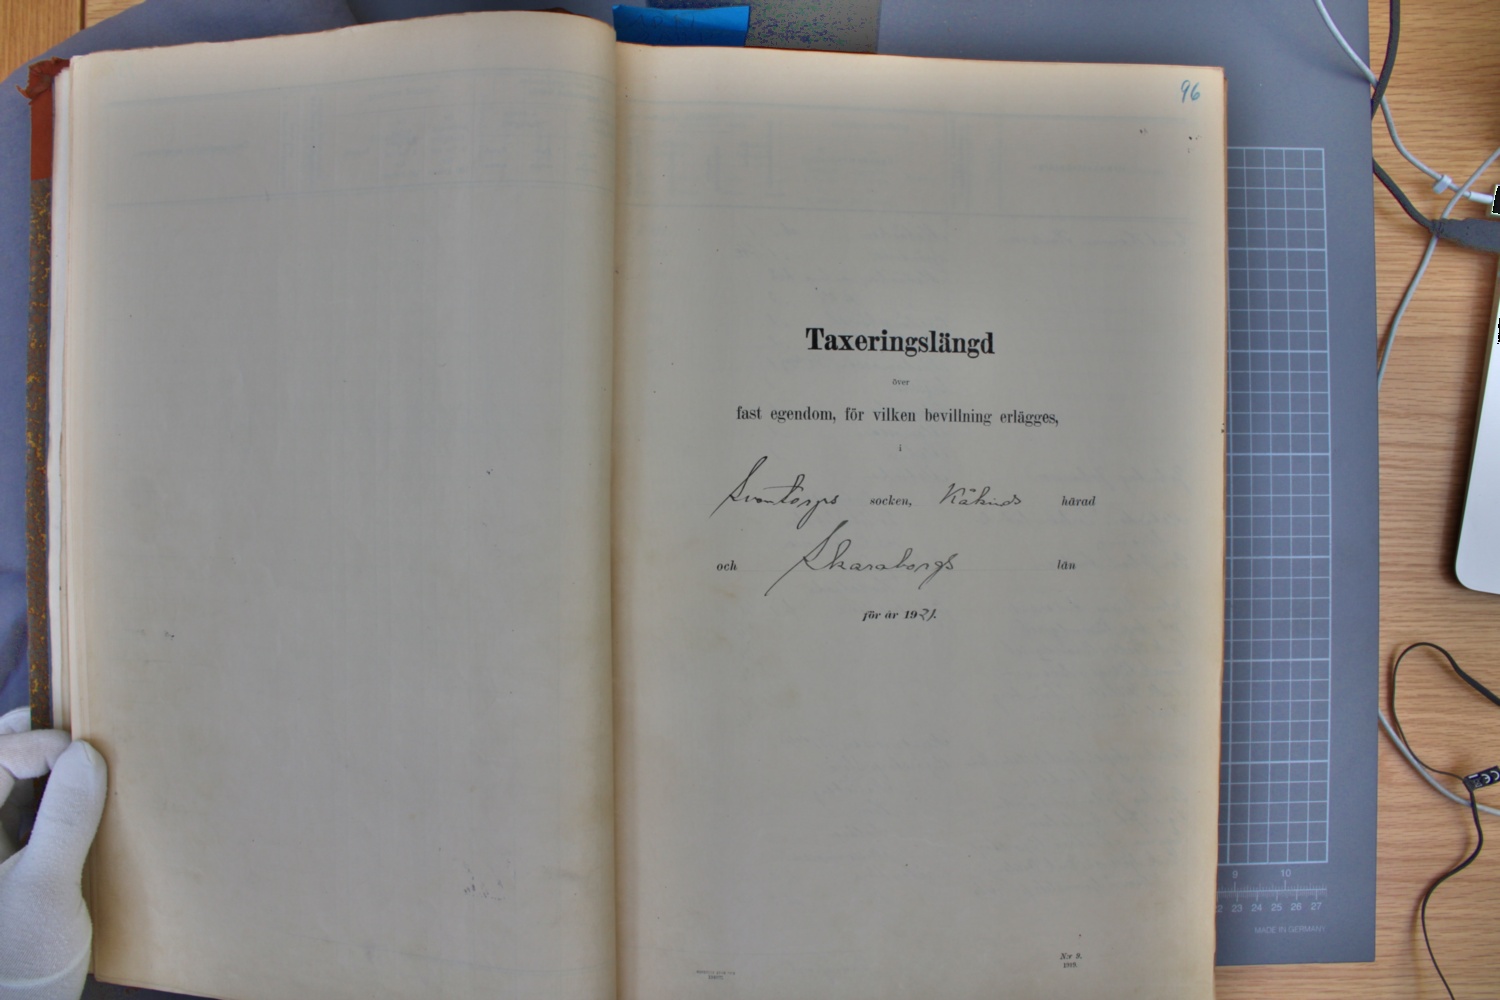 96
Taxeringslängd
över
fast egendom, för vilken bevillning erlägges,
i
Svantorps socken, Kåkinds härad
och Skaraborgs län
för år 1921.
N:r 9.
1919.
9 10
23 24 25 26 27
MADE IN GERMANY